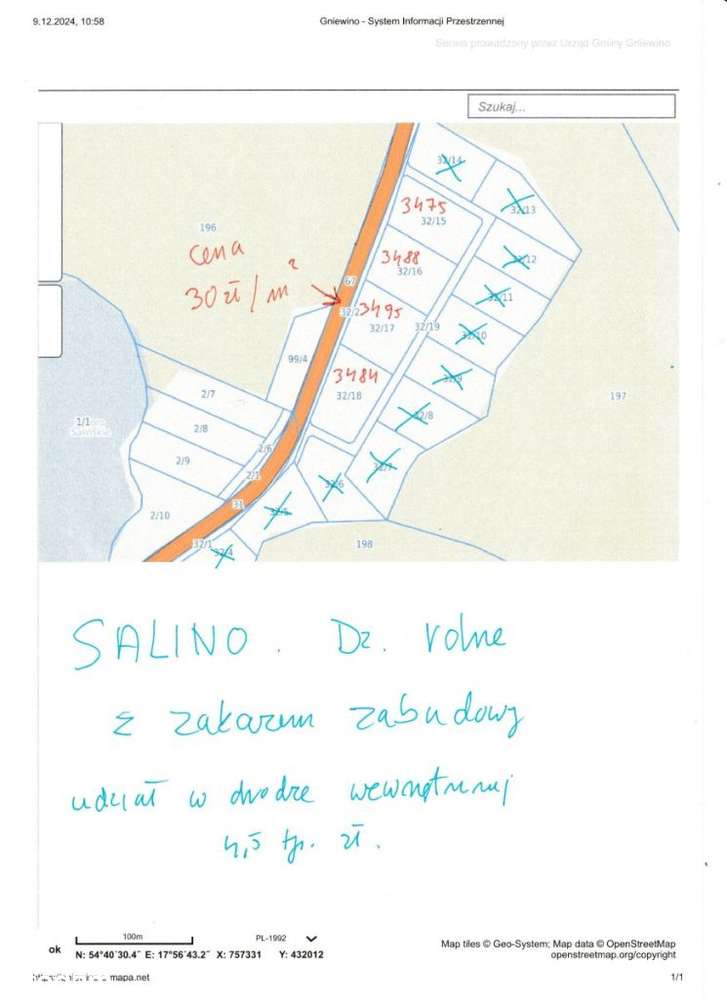 9.12.2024, 10:58
Gniewino - System Informacji Przestrzennej
Serwis prowadzony przez Urząd Gminy Gniewino
Szukaj...
32/14
3475
32/13
32/15
196
cena
3488
32/12
32/16
67
30 zł/m²
32/11
32/2
3495
32/17
32/19
32/10
99/4
3484
32/9
2/7
32/18
197
1/1
32/8
2/8
2/6
2/9
32/7
2/1
32/6
31
32/5
2/10
32/1
32/4
198
SALINO. Dz. rolne
z zakazem zabudowy
udział w drodze wewnętrznej
4,5 tys. zł.
100m
PL-1992
ok
N: 54°40´30.4˝ E: 17°56´43.2˝ X: 757331 Y: 432012
Map tiles © Geo-System; Map data © OpenStreetMap
openstreetmap.org/copyright
mapa.net
1/1